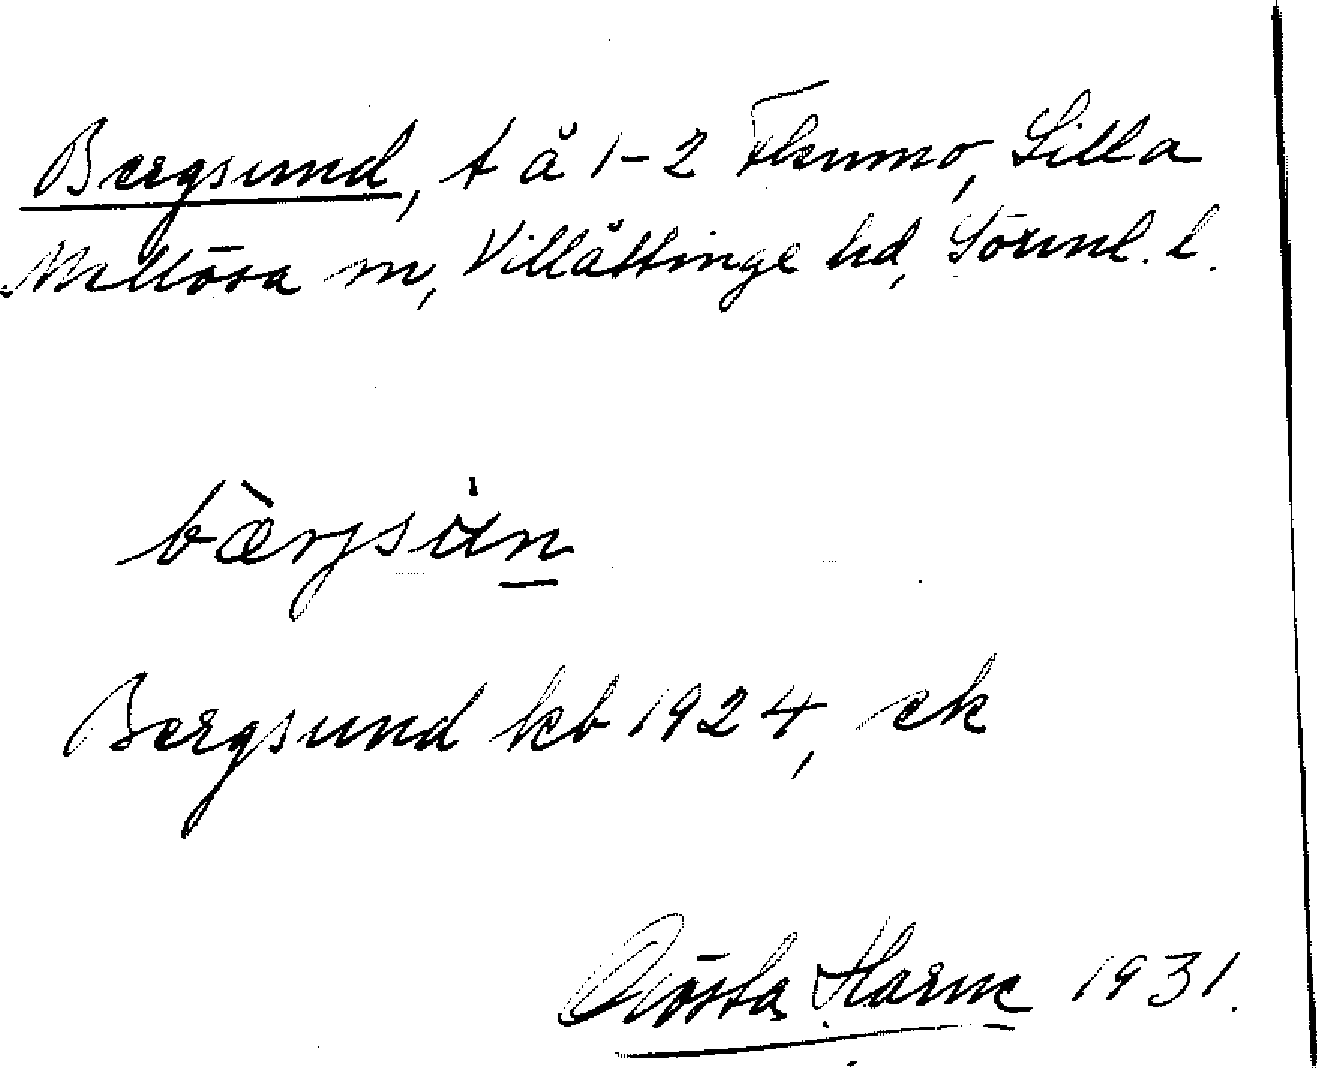 Bergsund, t å 1-2 Flenmo, Lilla
Mellösa sn, Villåttinge hd, Sörml. l.
bærjsun
Bergsund kb 1924, ek
Gösta Harne 1931.